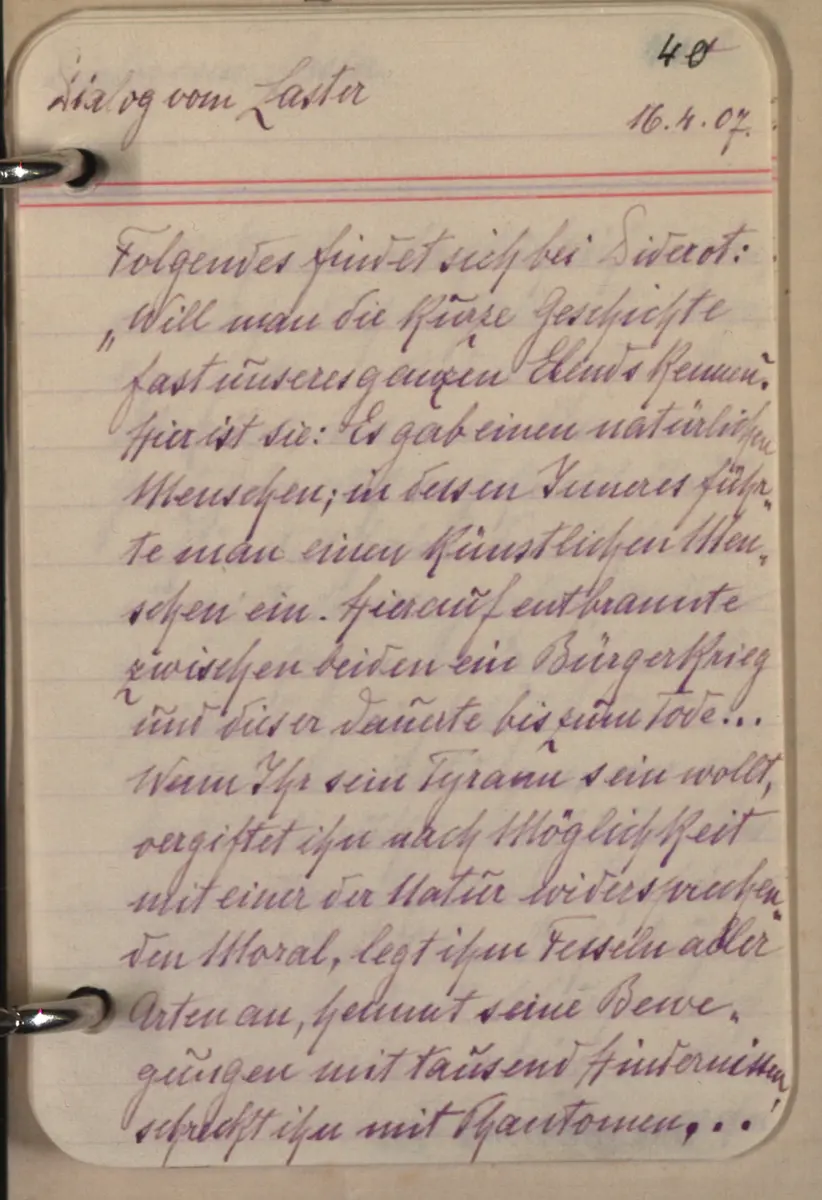 40
Dialog vom Laster
16.4.07.
Folgendes findet sich bei Diderot:
„Will man die kurze Geschichte
fast unseres ganzen Elends kennen.
Hier ist sie: Es gab einen natürlichen
Menschen; in dessen Inneres führ-
te man einen künstlichen Men-
schen ein. Hierauf entbrannte
zwischen beiden ein Bürgerkrieg
und dieser dauerte bis zum Tode...
Wenn Ihr sein Tyrann sein wollt,
vergiftet ihn nach Möglichkeit
mit einer der Natur widersprechen-
den Moral, legt ihm Fesseln aller
Arten an, hemmt seine Bewe-
gungen mit tausend Hindernissen,
schreckt ihn mit Phantomen,...!